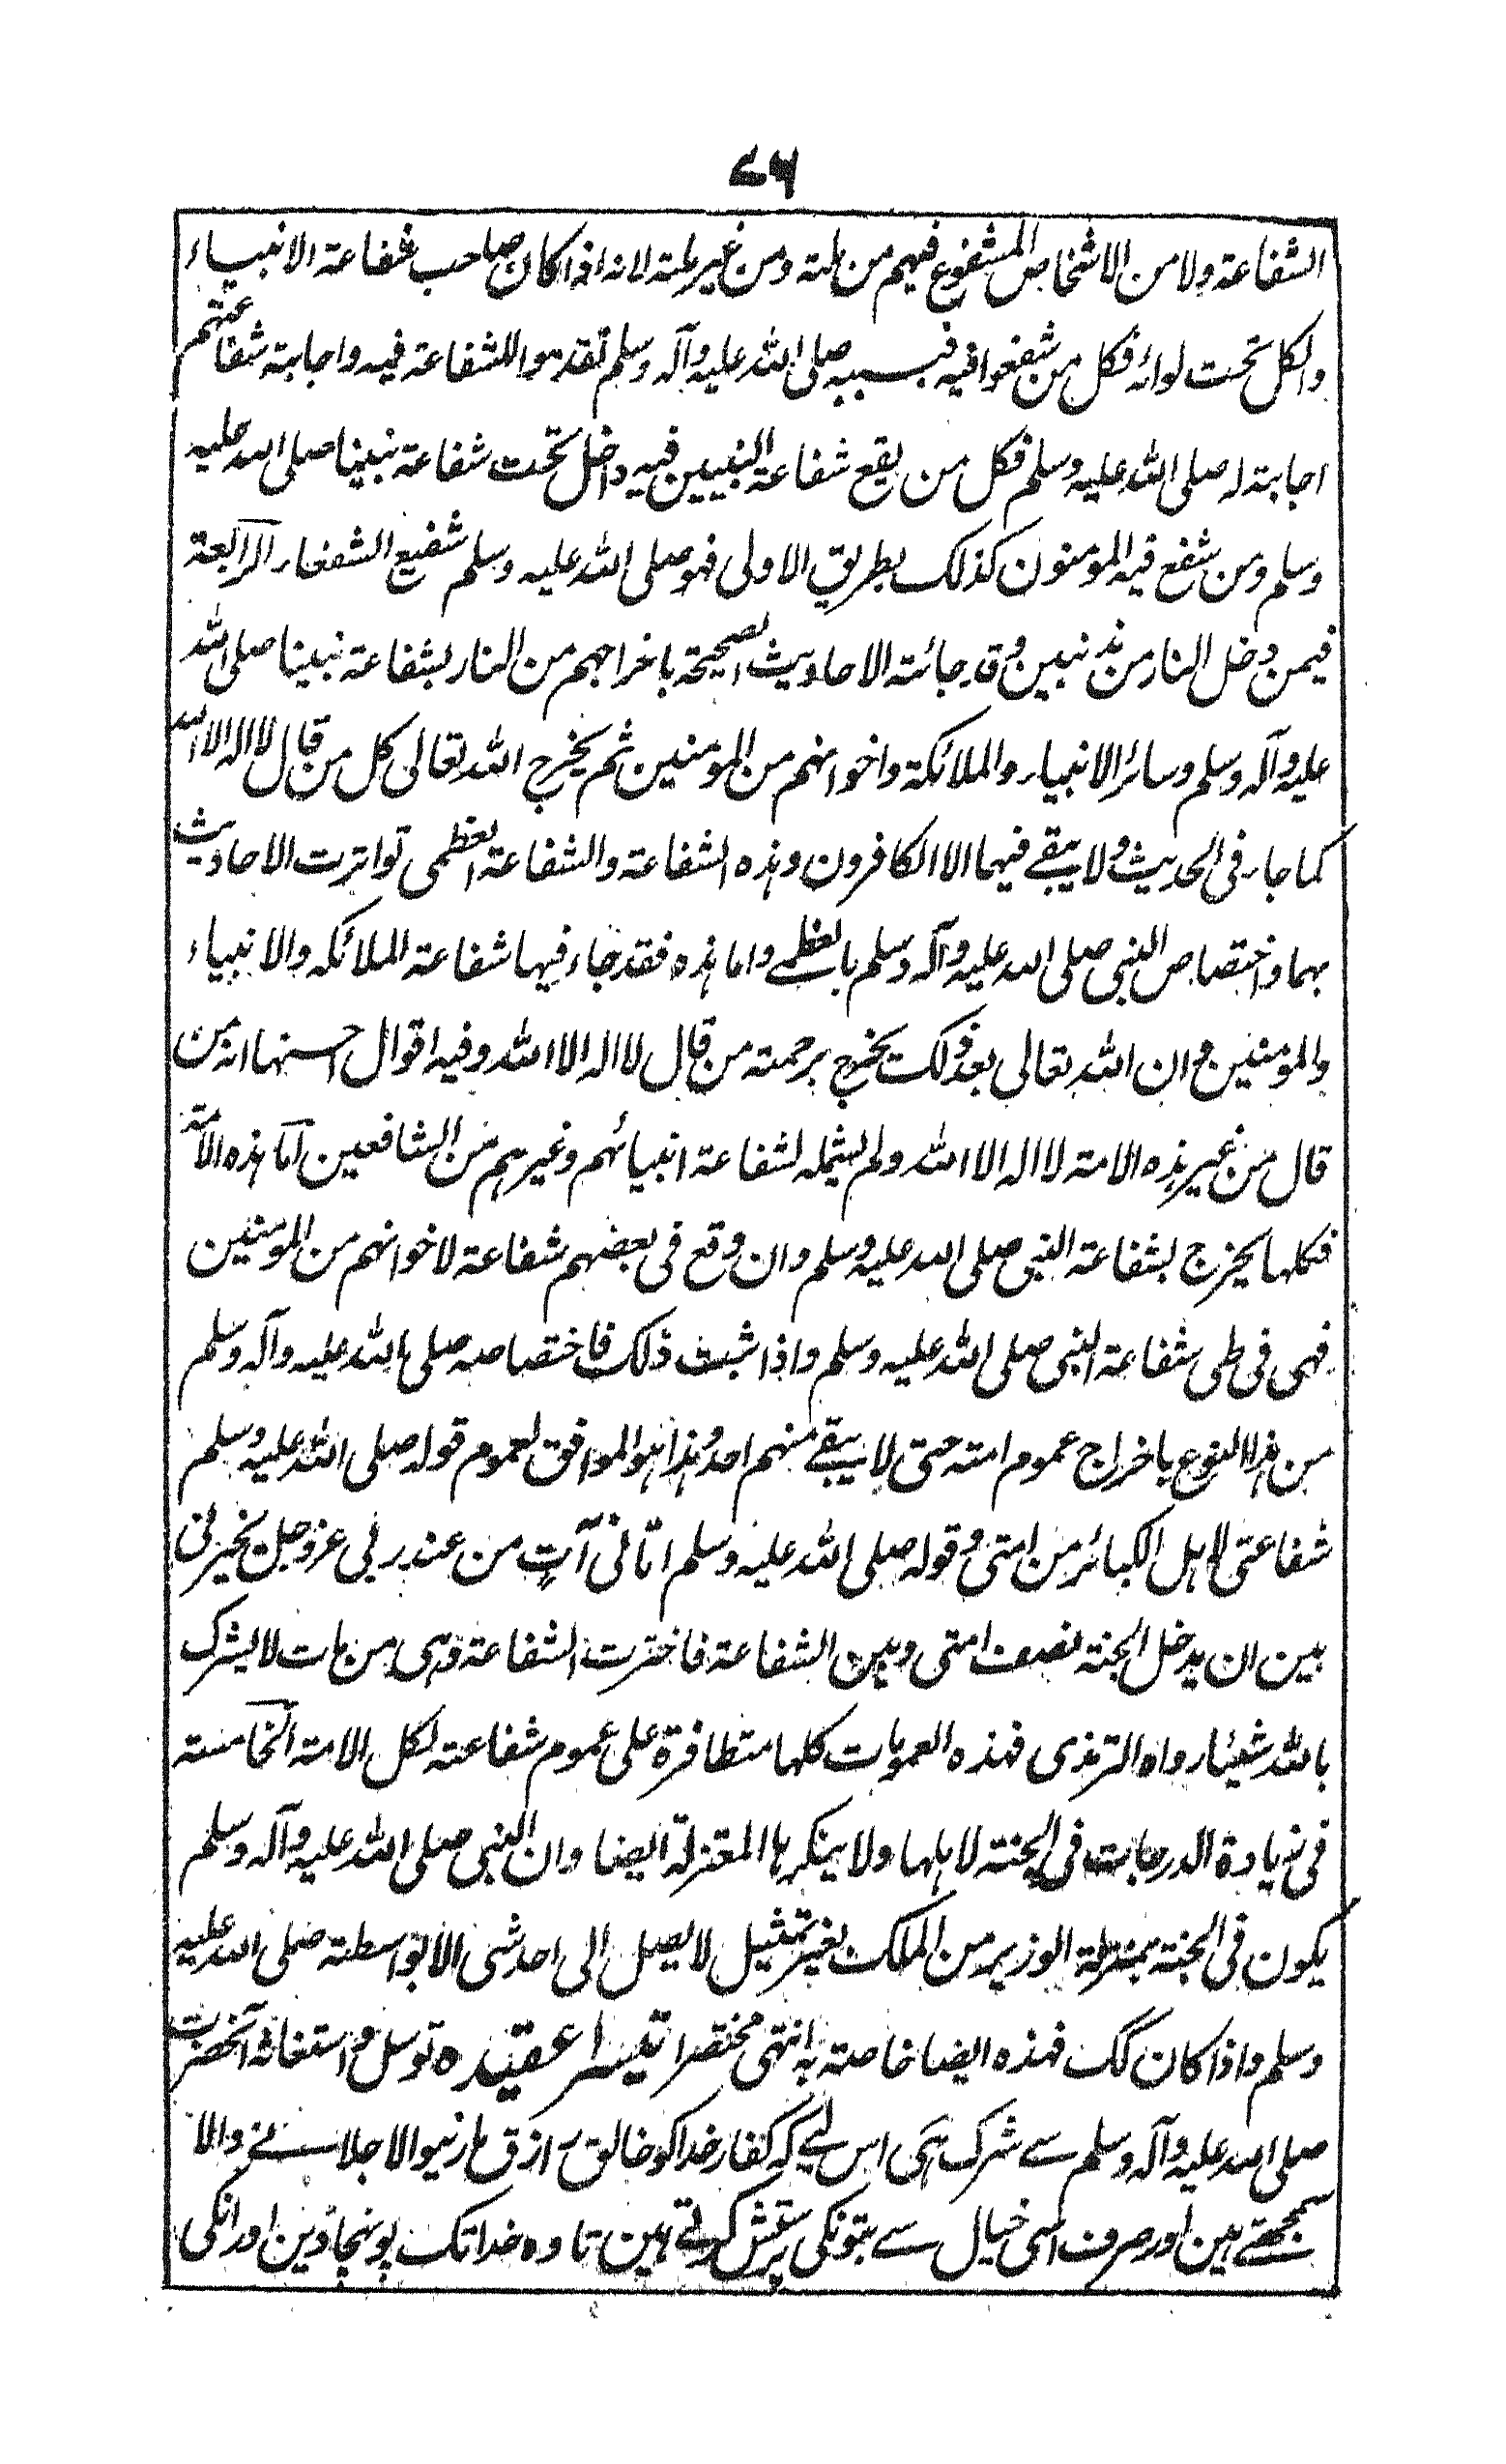 ۷۶
الشفاعة ولا من الاشخاص المشفوع فيهم من ملته ومن غير ملته لانه اذا كان صاحب شفاعة الانبياء
والكل تحت لوائه فكل من شفعوا فيه فبسببه صلى الله عليه وآله وسلم تقدموا للشفاعة فيه واجابة شفاعتهم
اجابة له صلى الله عليه وسلم فكل من يقع شفاعة النبيين فيه داخل تحت شفاعة نبينا صلى الله عليه
وسلم ومن شفع فيه المومنون كذلك بطريق الاولى فهو صلى الله عليه وسلم شفيع الشفعاء الرابعة
فيمن دخل النار من مذنبين وقد جائت الاحاديث الصحيحة باخراجهم من النار بشفاعة نبينا صلى الله
عليه وآله وسلم وسائر الانبياء والملائكة واخوانهم من المومنين ثم يخرج الله تعالى كل من قال لا اله الا الله
كما جاء فى الحديث ولا يبقے فيها الا الكافرون وهذه الشفاعة والشفاعة العظمى تواترت الاحاديث
بهما واختصاص النبى صلى الله عليه وآله وسلم بالعظمے واما هذه فقد جاء فيها شفاعة الملائكه والانبياء
والمومنين وان الله تعالى بعد ذلك يخرج برحمته من قال لا اله الا الله وفيه اقوال احسنها انه من
قال من غير هذه الامة لا اله الا الله ولم يشمله شفاعة انبيائهم وغيرهم من الشافعين اما هذه الامة
فكلها يخرج بشفاعة النبى صلى الله عليه وسلم وان وقع فى بعضهم شفاعة لاخوانهم من المومنين
فهى فى طى شفاعة النبى صلى الله عليه وسلم واذا ثبت ذلك فاختصاصه صلى الله عليه وآله وسلم
من هذا النوع باخراج عموم امته حتى لا يبقے منهم احد وهذا هو الموافق لعموم قوله صلى الله عليه وسلم
شفاعتى لاهل الكبائر من امتى وقوله صلى الله عليه وسلم اتانى آتٍ من عند ربى عز وجل يخيرنى
بين ان يدخل الجنة نصف امتى وبين الشفاعة فاخترت الشفاعة وهى من مات لا يشرك
بالله شيئا رواه الترمذى فهذه العمومات كلها متظافرة على عموم شفاعته لكل الامة الخامسة
فى زيادة الدرجات فى الجنة لاهلها ولا ينكرها المعتزلة ايضا وان النبى صلى الله عليه وآله وسلم
يكون فى الجنة بمنزلة الوزير من الملك بغير تمثيل لا يصل الى احد شى الا بواسطته صلى الله عليه
وسلم واذا كان كك فهذه ايضا خاصته به انتهى مختصرا تیسرا عقیدہ توسل و استغاثہ آنحضرت
صلی اللہ علیہ وآلہ وسلم سے شرک ہی اس لیے کہ کفار خدا کو خالق رازق مارنیوالا جلانے والا
سمجھتے ہین اور صرف اسی خیال سے بتونکی پرستش کرتے ہین تا وہ خدا تک پونہچا دین اور انکی